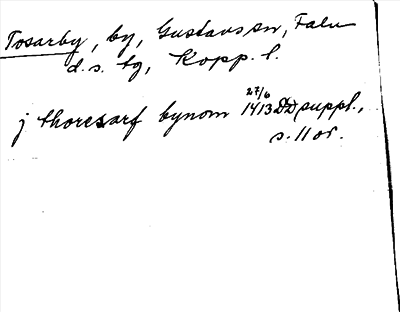 Tosarby, by, Gustavs sn, Falu
d. s. tg, Kopp. l.
j thoresarf bynom 27/6 1413 DD suppl.,
s. 11 or.